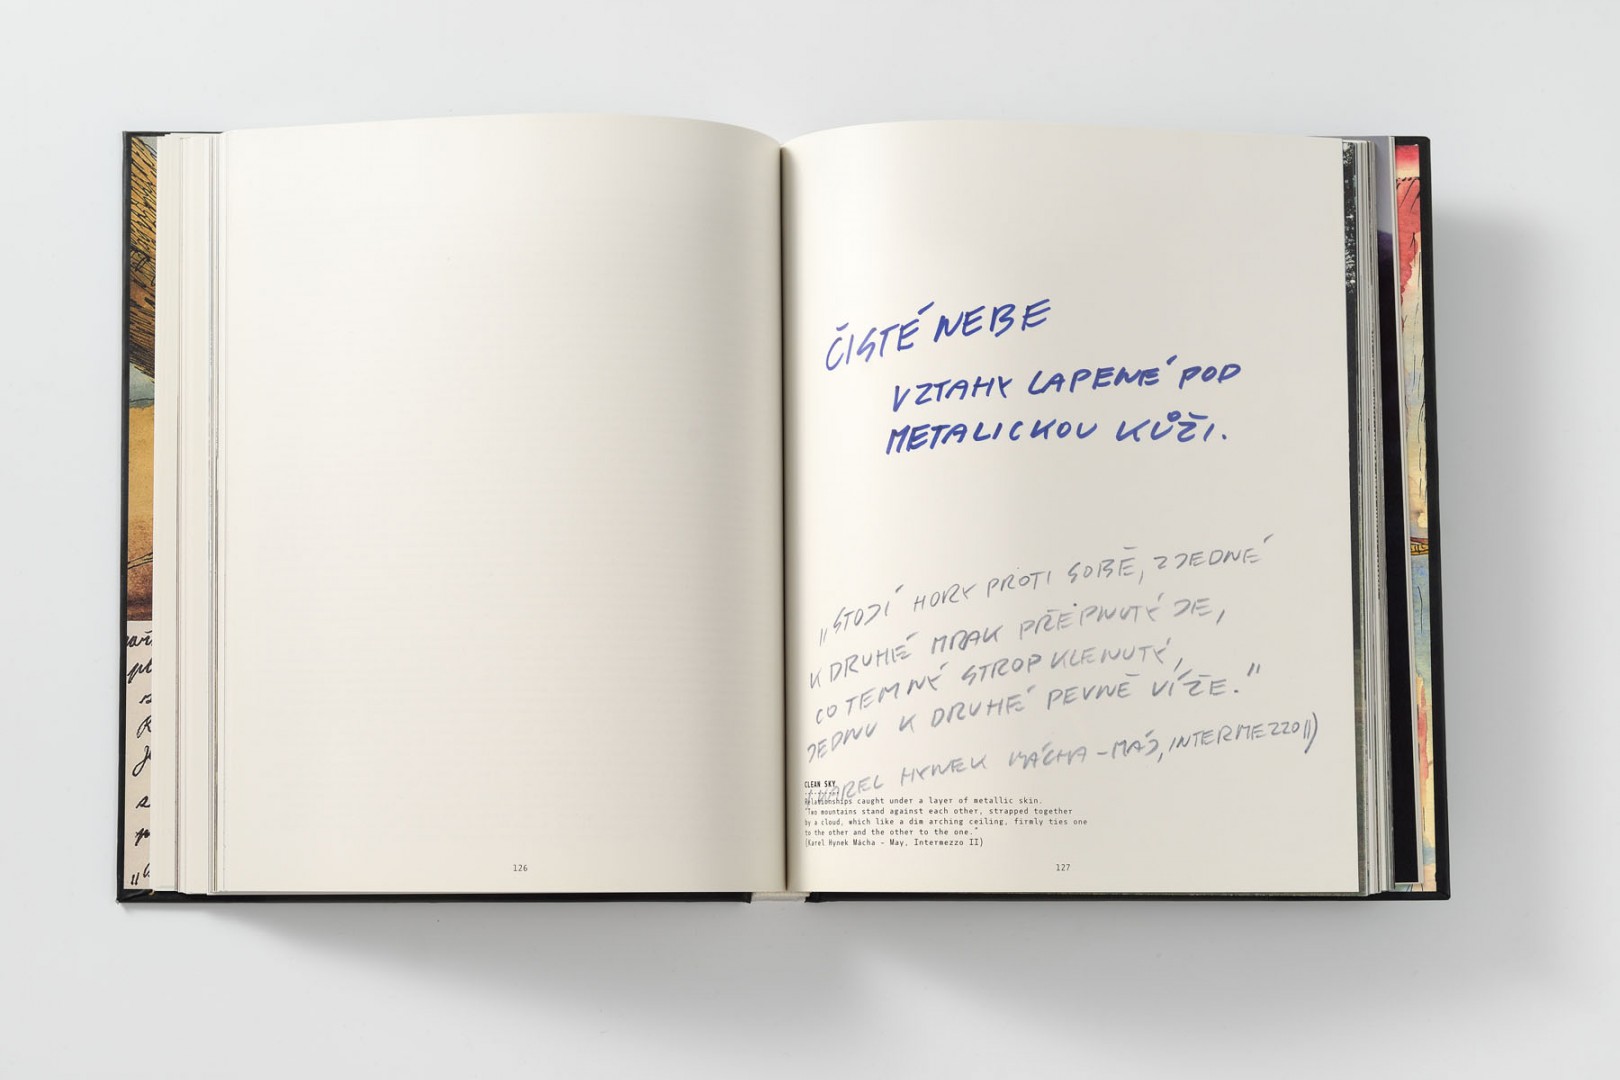 ČISTÉ NEBE
VZTAHY LAPENÉ POD
METALICKOU KŮŽI.
„STOJÍ HORY PROTI SOBĚ, Z JEDNÉ
K DRUHÉ MRAK PŘEPNUTÝ JE,
CO TEMNÝ STROP KLENUTÝ,
JEDNU K DRUHÉ PEVNĚ VÍŽE."
(KAREL HYNEK MÁCHA – MÁJ, INTERMEZZO II)
CLEAN SKY
Relationships caught under a layer of metallic skin.
"Two mountains stand against each other, strapped together
by a cloud, which like a dim arching ceiling, firmly ties one
to the other and the other to the one."
(Karel Hynek Mácha - May, Intermezzo II)
126
127